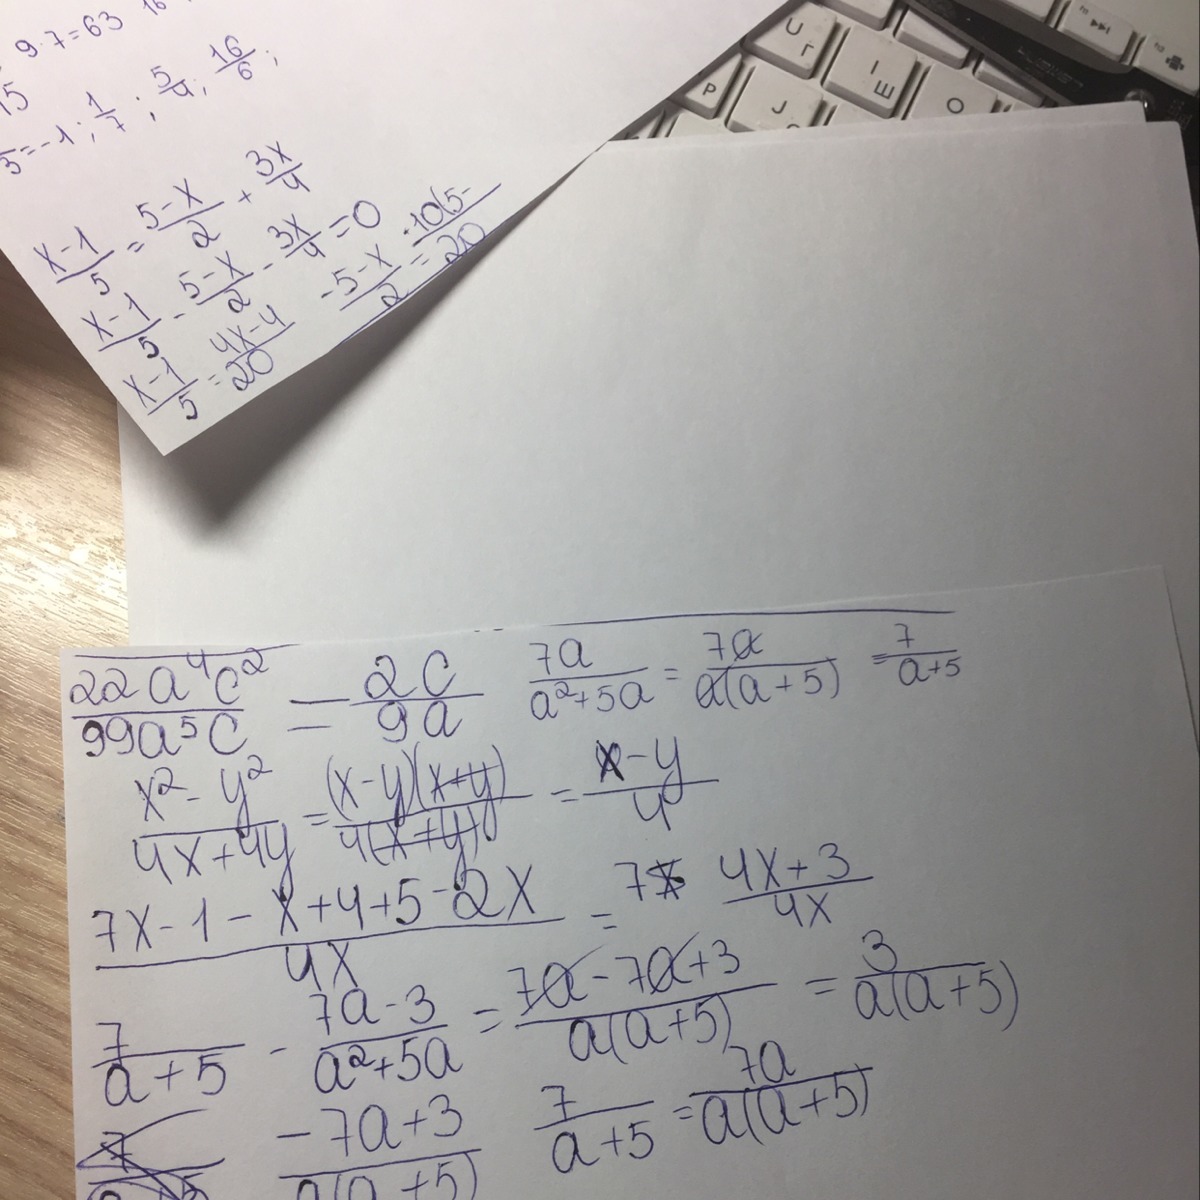 9·7=63 16
15
3=-1; 1/7; 5/4; 16/6;
(x-1)/5 = (5-x)/2 + 3x/4
(x-1)/5 - (5-x)/2 - 3x/4 = 0
(x-1)/5 = (4x-4)/20 (-5-x)/2 = -10(5-/20
22a⁴c²/99a⁵c = 2c/9a 7a/(a²+5a) = 7a/a(a+5) = 7/(a+5)
(x²-y²)/(4x+4y) = (x-y)(x+y)/4(x+y) = (x-y)/4
(7x-1-x+4+5-2x)/4x = 7 (4x+3)/4x
7/(a+5) - (7a-3)/(a²+5a) = (7a-7a+3)/a(a+5) = 3/a(a+5)
7 (-7a+3)/a(a+5) 7/(a+5) = 7a/a(a+5)
U Г
І Ш
P
J О
О